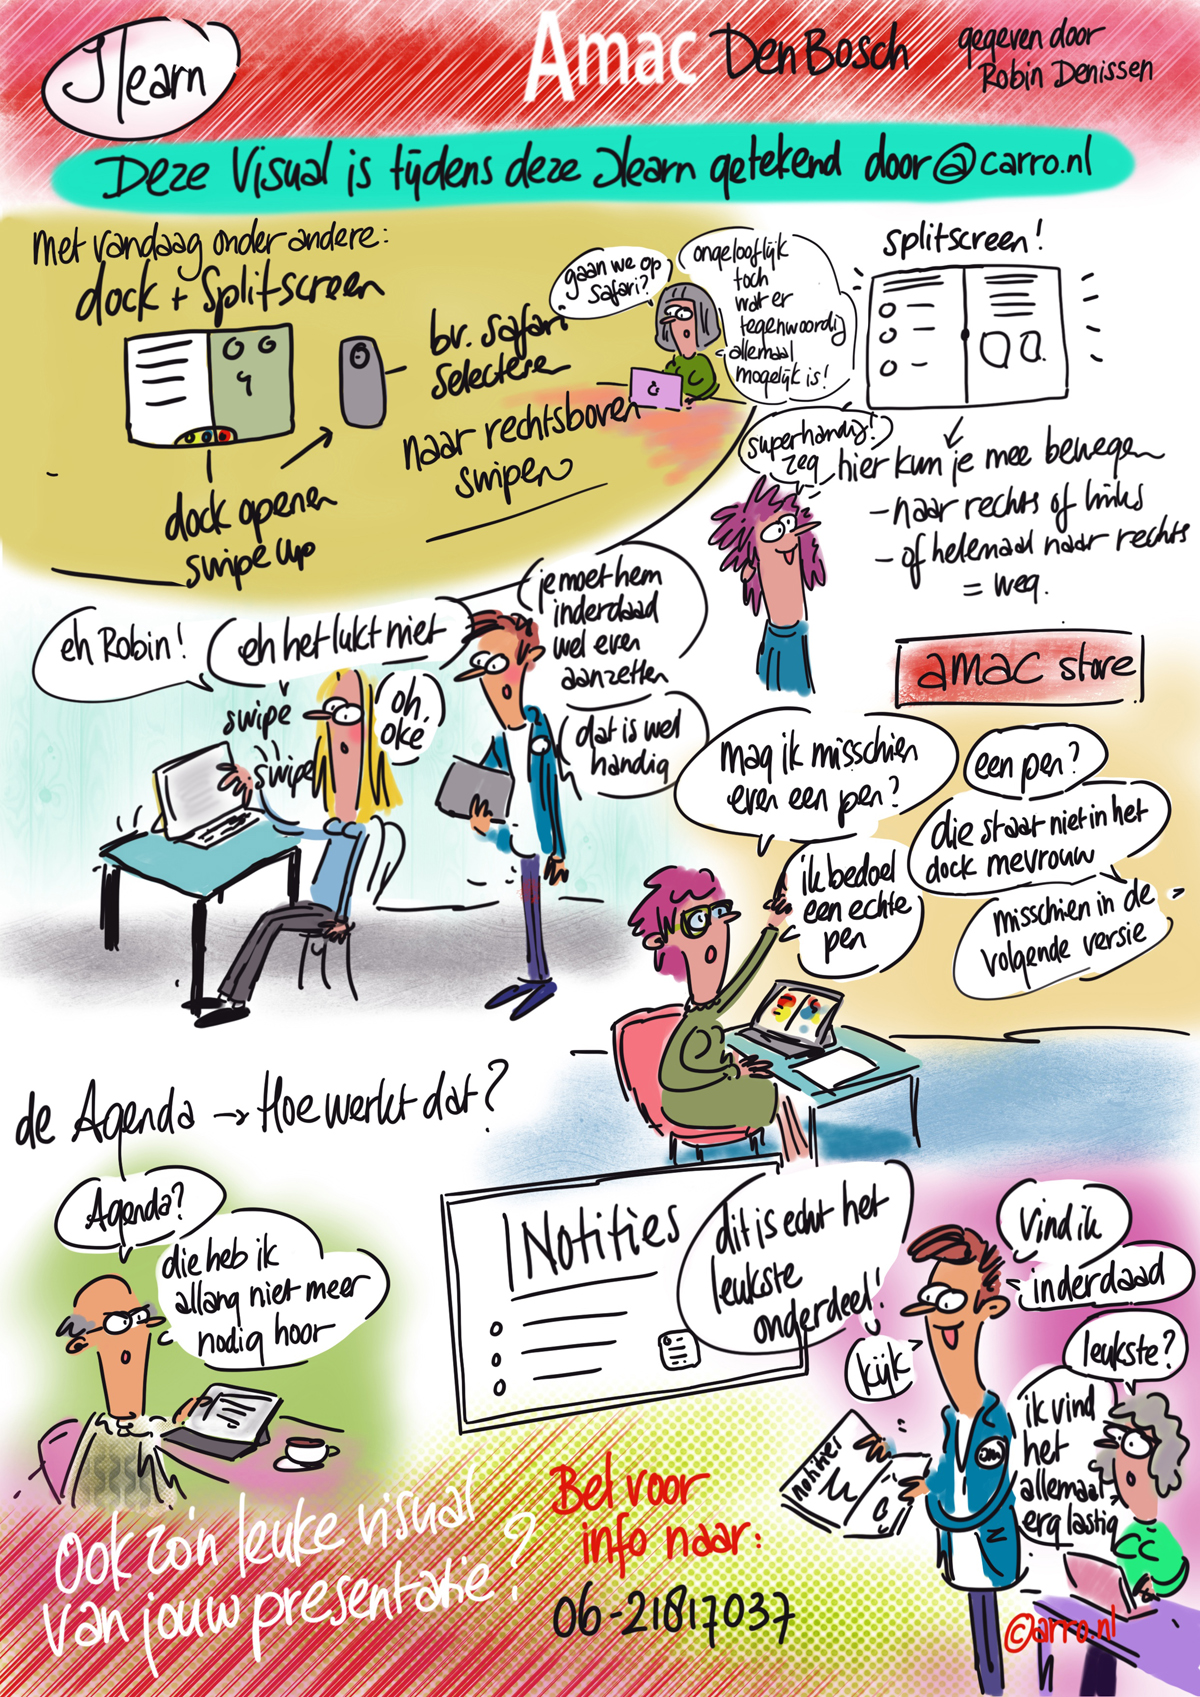 Ilearn
Amac Den Bosch
gegeven door
Robin Denissen
Deze Visual is tijdens deze Ilearn getekend door @carro.nl
Met vandaag onder andere:
dock + Splitscreen
bv. Safari
selecteren
naar rechtsboven
swipen
dock openen
swipe up
gaan we op
Safari?
ongelooflijk
toch
wat er
tegenwoordig
allemaal
mogelijk is!
splitscreen!
superhandig!
zeg
hier kun je mee bewegen
- naar rechts of links
- of helemaal naar rechts
= weg.
eh Robin!
eh het lukt niet
swipe
swipe
oh,
oke
je moet hem
inderdaad
wel even
aanzetten
dat is wel
handig
amac store
mag ik misschien
even een pen?
een pen?
die staat niet in het
dock mevrouw
ik bedoel
een echte
pen
misschien in de
volgende versie
de Agenda → Hoe werkt dat?
Agenda?
die heb ik
allang niet meer
nodig hoor
Notities
dit is echt het
leukste
onderdeel!
Vind ik
inderdaad
kijk
leukste?
ik vind
het
allemaal
erg lastig
notities
Ook zo'n leuke visual
van jouw presentatie?
Bel voor
info naar:
06-21817037
©arro.nl